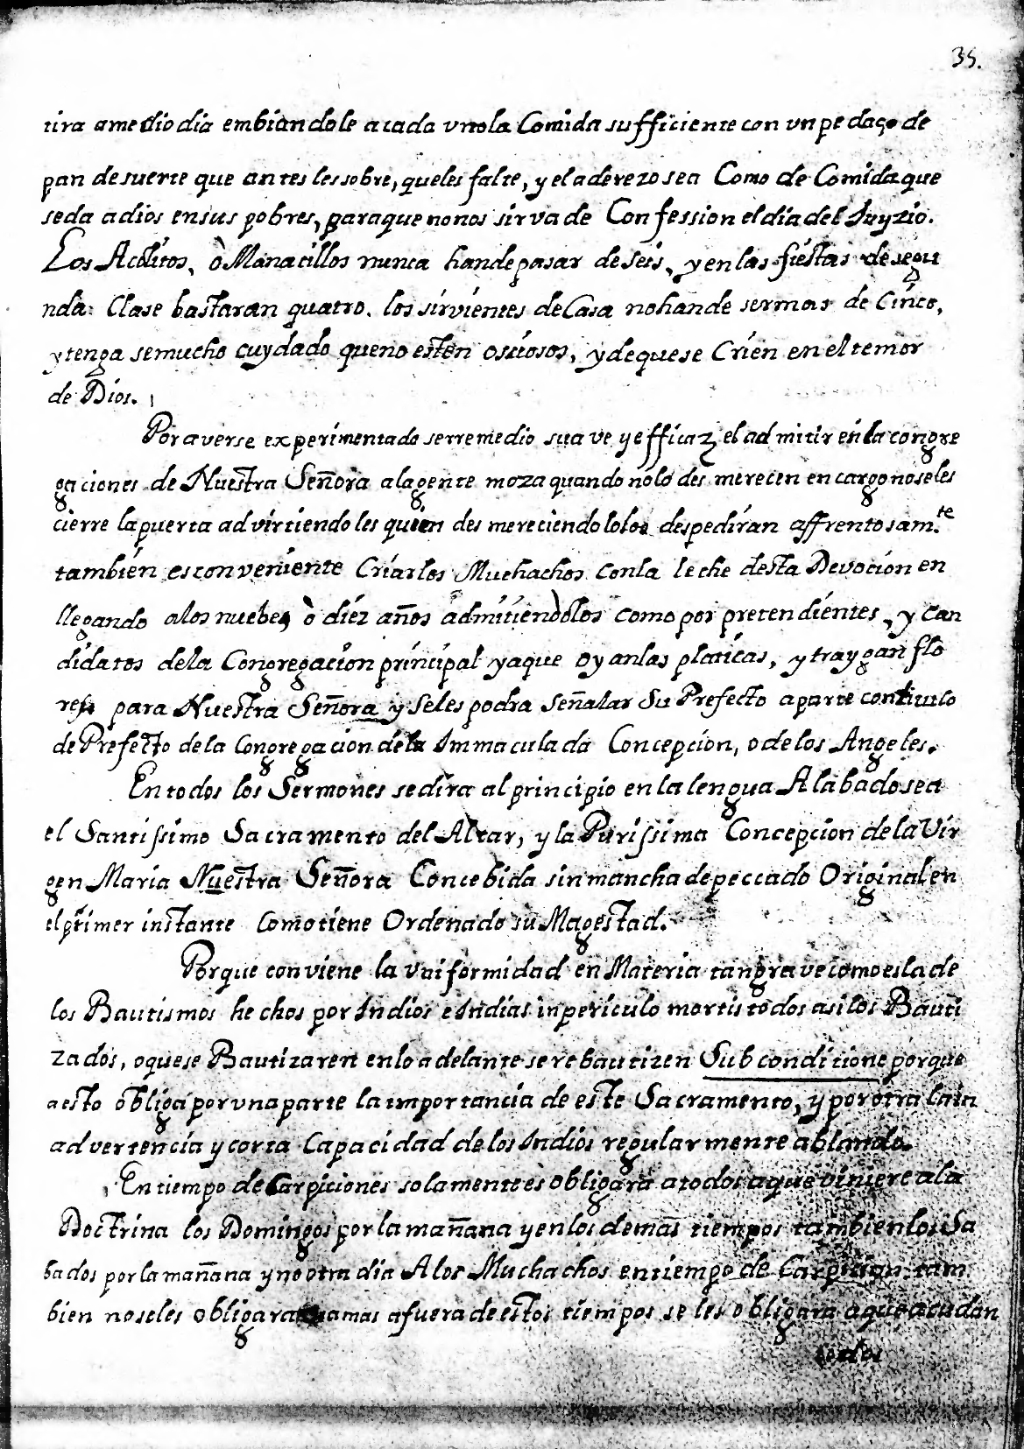 35.
tira amedio dia embiandole a cada vno la Comida sufficiente con vn pedaço de
pan desuerte que antes les sobre, que les falte, y el aderezo sea Como de Comida que
se da a dios en sus pobres, para que no nos sirva de Confession el dia del Iuyzio.
Los Acolitos, ò Monacillos nunca han de pasar de seis, y en las fiestas de segu
nda: Clase bastaran quatro. los sirvientes de Casa no hande ser mas de Cinco,
y tenga se mucho cuydado que no esten osciosos, y de que se Crien en el temor
de Dios.
Por averse experimentado ser remedio suave y efficaz el admitir en la congre
gaciones de Nuestra Señora a la gente moza quando no lo des merecen encargo no se les
cierre la puerta advirtiendoles quien des mereciendolo los despediran affrentosam.te
tambien es conveniente Criar los Muchachos con la leche desta Devocion en
llegando a los nuebe, ò diez años admitiendolos como por pretendientes, y can
didatos de la Congregacion principal y a que oyan las platicas, y traygan flo
res para Nuestra Señora y se les podra señalar Su Prefecto a parte con titulo
de Prefecto de la Congregacion de la Immaculada Concepcion, o de los Angeles.
En todos los Sermones se dira al principio en la lengua Alabado sea
el Santissimo Sacramento del Altar, y la Purissima Concepcion de la Vir
gen Maria Nuestra Señora Concebida sin mancha de peccado Original en
el primer instante Como tiene Ordenado su Magestad.
Porque conviene la Vniformidad en Materia tan grave como es la de
los Bautismos hechos por Indios e Indias in periculo mortis todos asi los Bauti
zados, o que se Bautizaren en lo adelante se rebautizen Sub conditione porque
a esto obliga por vna parte la importancia de este Sacramento, y por otra la in
advertencia y corta Capacidad de los Indios regularmente ablando.
En tiempo de Carpiciones solamente se obligara a todos a que viniere a la
Doctrina los Domingos por la mañana y en los demas tiempos tambien los Sa
bados por la mañana y no otra dia A los Muchachos en tiempo de Carpicion tam
bien no se les obligara mas afuera de estos tiempos se les obligara a que acudan
todos